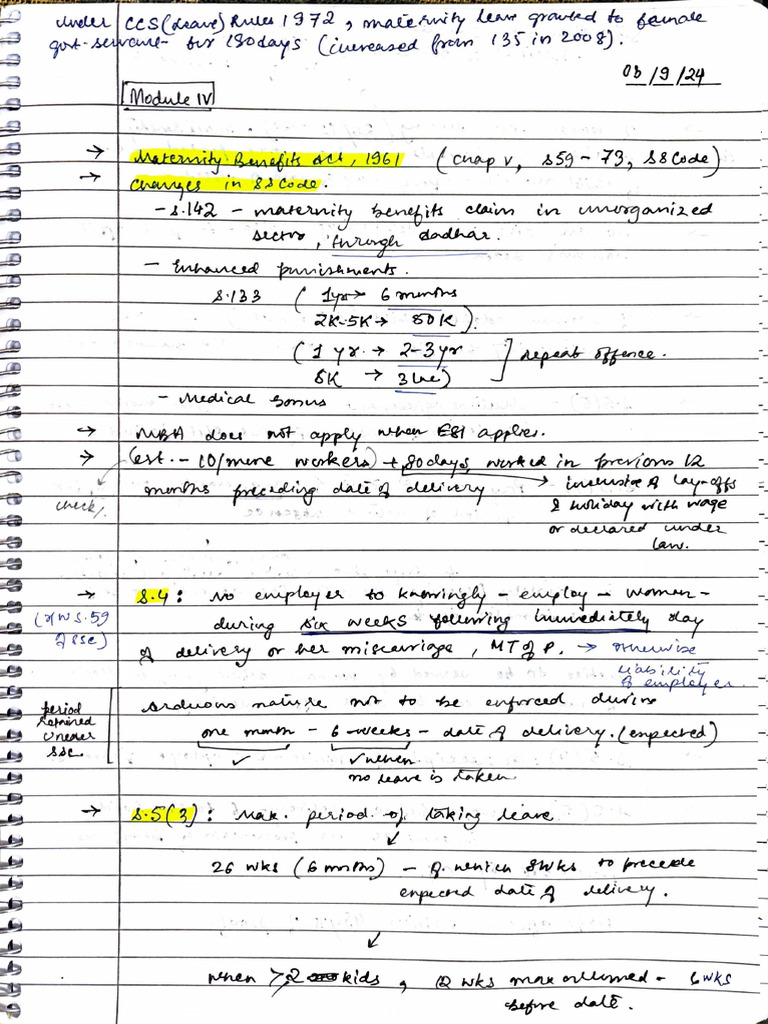 under CCS (Leave) Rules 1972, maternity leave granted to female
govt. servant for 180 days (increased from 135 in 2008).
03/9/24
Module IV
→ Maternity Benefits Act, 1961 (Chap V, S59-73, SSCode)
→ Changes in SSCode.
- S.142 - maternity benefits claim in unorganized
sector, through Aadhar.
- Enhanced punishments.
S.133 (1yr → 6 months
2K-5K → 50K).
(1 yr. → 2-3 yr
5K → 3 lac) ] repeat offence.
- Medical bonus
→ MBA does not apply when ESI applies.
→ (est. - 10/more workers) + 80 days, worked in previous 12
months preceding date of delivery → inclusive of lay-offs
check/ & holiday with wage
or declared under
law.
→ S.4: No employer to knowingly - employ - women -
(r/w S.59 during six weeks following immediately day
of SSC) of delivery or her miscarriage, MT of P. → otherwise
liability
of employer.
period Arduous nature not to be enforced during
retained one month - 6-weeks - date of delivery. (expected)
under ✓ ✓ when
SSC. no leave is taken
→ S.5(3): Max. period of taking leave
↙
26 wks (6 months) - of which 8wks to precede
expected date of delivery.
↙
when ≥ 2 kids, 12 wks max allowed - 6 wks
before date.